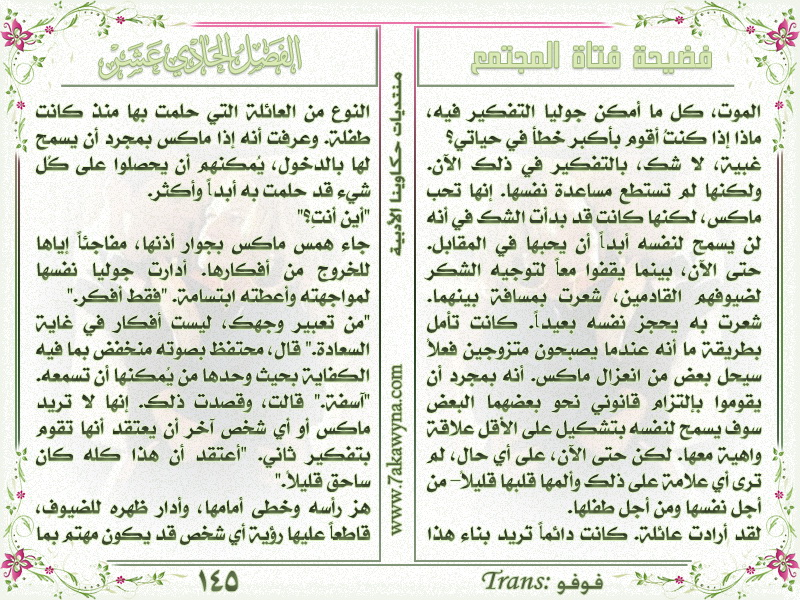 فضيحة فتاة المجتمع
الموت، كل ما أمكن جوليا التفكير فيه،
ماذا إذا كنتُ أقوم بأكبر خطأ في حياتي؟
غبية، لا شك، بالتفكير في ذلك الآن.
ولكنها لم تستطع مساعدة نفسها. إنها تحب
ماكس، لكنها كانت قد بدأت الشك في أنه
لن يسمح لنفسه أبداً أن يحبها في المقابل.
حتى الآن، بينما يقفوا معاً لتوجيه الشكر
لضيوفهم القادمين، شعرت بمسافة بينهما.
شعرت به يحجز نفسه بعيداً. كانت تأمل
بطريقة ما أنه عندما يصبحون متزوجين فعلاً
سيحل بعض من انعزال ماكس. أنه بمجرد أن
يقوموا بإلتزام قانوني نحو بعضهما البعض
سوف يسمح لنفسه بتشكيل على الأقل علاقة
واهية معها. لكن حتى الآن، على أي حال، لم
ترى أي علامة على ذلك وألمها قلبها قليلاً– من
أجل نفسها ومن أجل طفلها.
لقد أرادت عائلة. كانت دائماً تريد بناء هذا
منتديات حكاوينا الأدبية
www.7akawyna.com
الفصل الحادي عشر
النوع من العائلة التي حلمت بها منذ كانت
طفلة. وعرفت أنه إذا ماكس بمجرد أن يسمح
لها بالدخول، يُمكنهم أن يحصلوا على كُل
شيء قد حلمت به أبداً وأكثر.
"أين أنتِ؟"
جاء همس ماكس بجوار أذنها، مفاجئاً إياها
للخروج من أفكارها. أدارت جوليا نفسها
لمواجهته وأعطته ابتسامة. "فقط أفكر."
"من تعبير وجهك، ليست أفكار في غاية
السعادة." قال، محتفظ بصوته منخفض بما فيه
الكفاية بحيث وحدها من يُمكنها أن تسمعه.
"آسفة." قالت، وقصدت ذلك. إنها لا تريد
ماكس أو أي شخص آخر أن يعتقد أنها تقوم
بتفكير ثاني. "أعتقد أن هذا كله كان
ساحق قليلاً."
هز رأسه وخطى أمامها، وأدار ظهره للضيوف،
قاطعاً عليها رؤية أي شخص قد يكون مهتم بما
Trans: فوفو
١٤٥